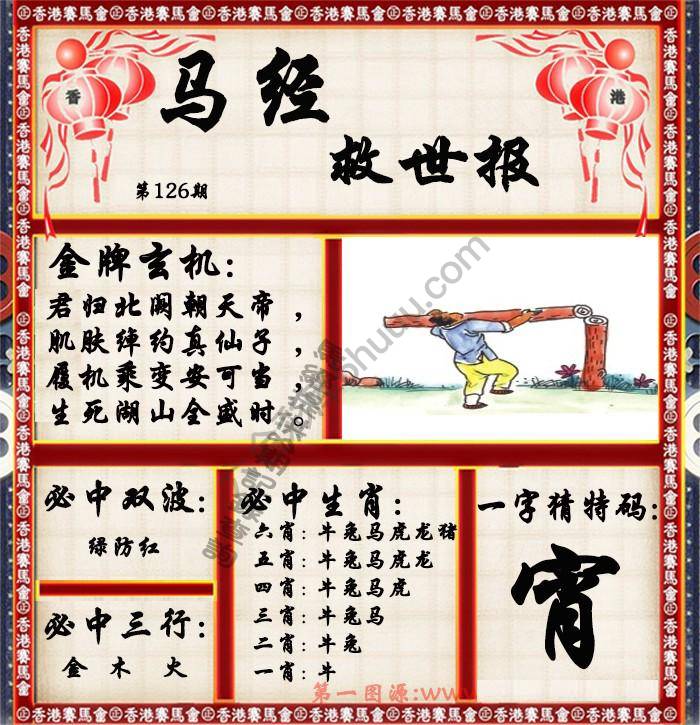 香港賽馬會㊣香港賽馬會㊣香港賽馬會㊣香港賽馬會㊣香港賽馬會㊣香港賽馬會
香
港
马经
救世报
第126期
金牌玄机:
君归北阙朝天帝，
肌肤绰约真仙子，
履机乘变安可当，
生死湖山全盛时。
必中双波:
绿防红
必中三行:
金 木 火
必中生肖:
六肖: 牛兔马虎龙猪
五肖: 牛兔马虎龙
四肖: 牛兔马虎
三肖: 牛兔马
二肖: 牛兔
一肖: 牛
一字猜特码:
宵
第一图源:www